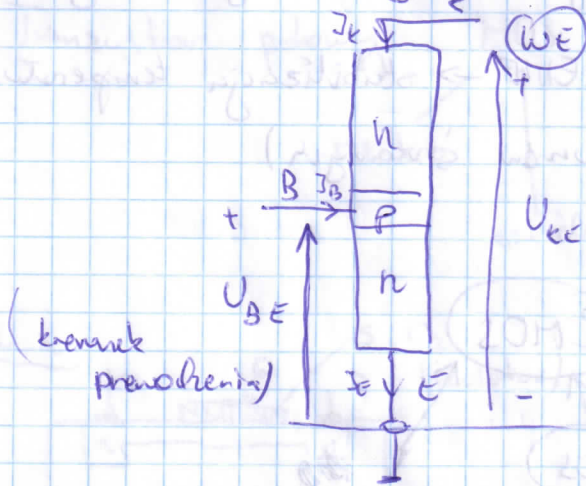 I_K
WE
+
n
B I_B
+
p
U_KE
U_BE
n
(kierunek
przewodzenia)
I_E E
-